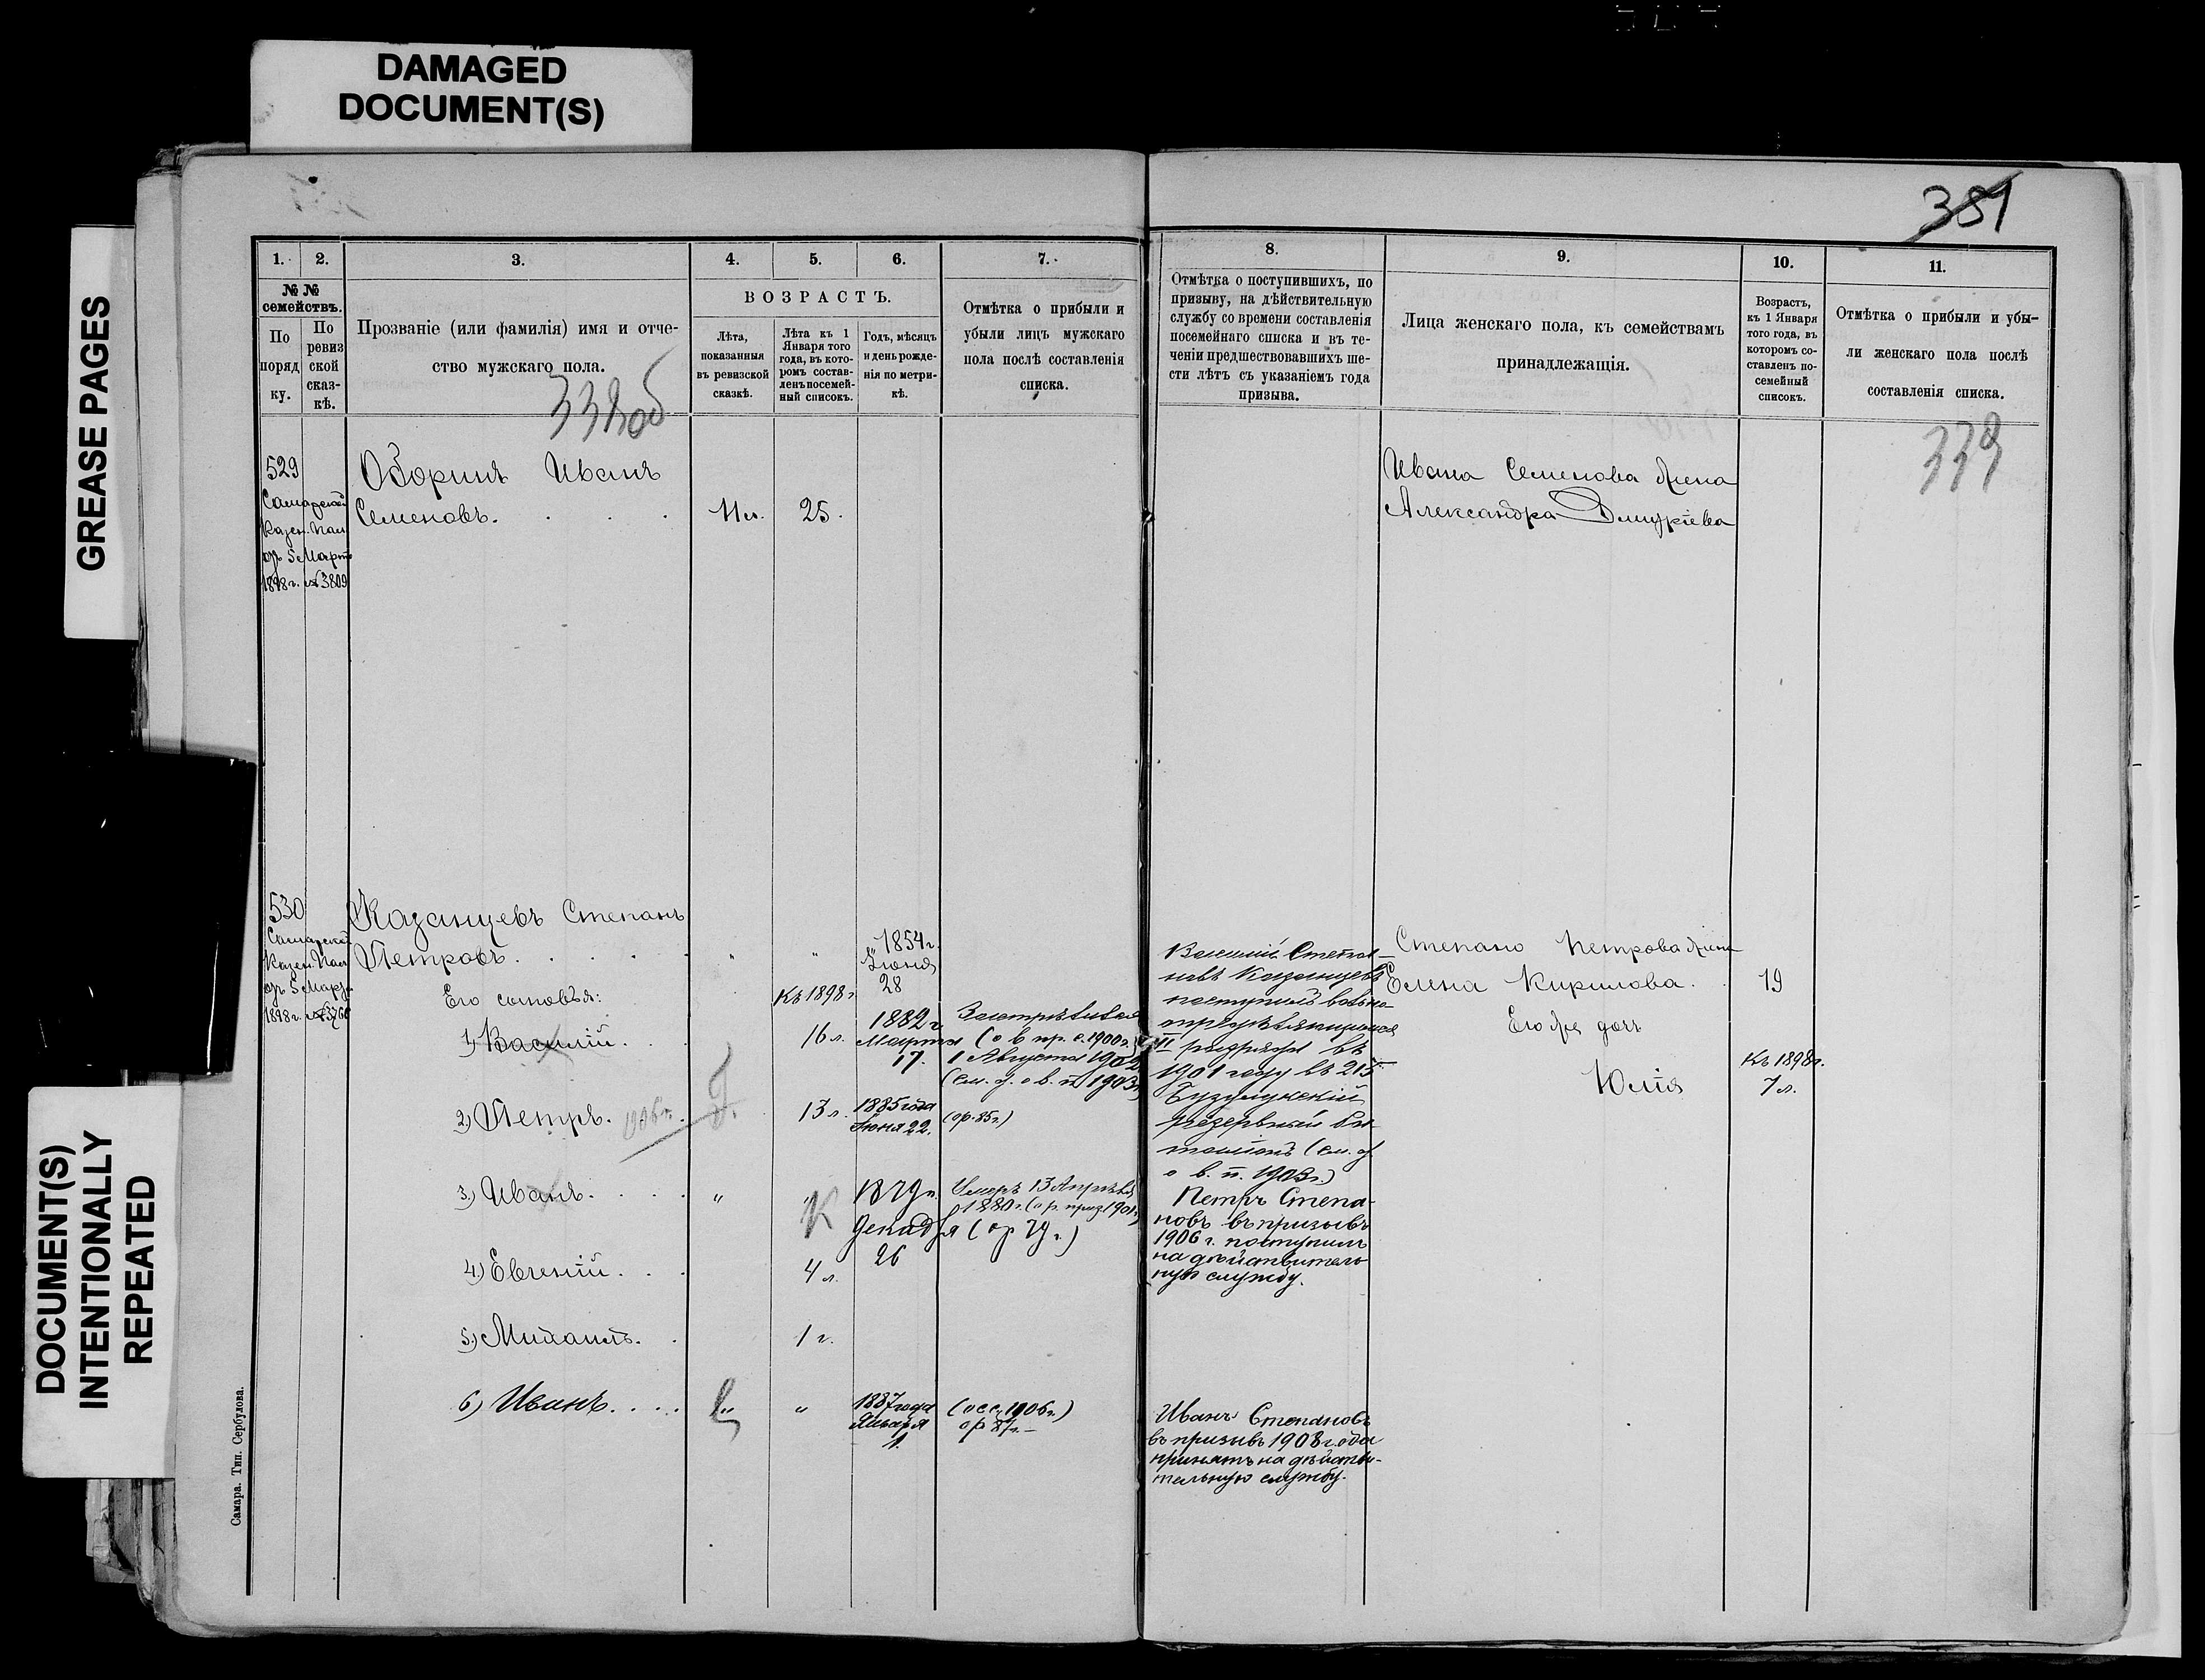 DAMAGED
DOCUMENT(S)
GREASE PAGES
DOCUMENT(S)
INTENTIONALLY
REPEATED
381
1.
2.
3.
4.
5.
6.
7.
№ №
семействъ.
По
поряд
ку.
По
ревиз
ской
сказ-
кѣ.
Прозваніе (или фамилія) имя и отче-
ство мужскаго пола.
ВОЗРАСТЪ.
Лѣта,
показанныя
въ ревизской
сказкѣ.
Лѣта къ 1
Января того
года, въ кото-
ромъ состав-
ленъ посемей-
ный списокъ.
Годъ, мѣсяцъ
и день рожде-
нія по метри-
кѣ.
Отмѣтка о прибыли и
убыли лицъ мужскаго
пола послѣ составленія
списка.
8.
9.
10.
11.
Отмѣтка о поступившихъ, по
призыву, на дѣйствительную
службу со времени составленія
посемейнаго списка и въ те-
ченіи предшествовавшихъ ше-
сти лѣтъ съ указаніемъ года
призыва.
Лица женскаго пола, къ семействамъ
принадлежащія.
Возрастъ,
къ 1 Января
того года, въ
которомъ со-
ставленъ по-
семейный
списокъ.
Отмѣтка о прибыли и убы-
ли женскаго пола послѣ
составленія списка.
338об
339
529
Самарской
Казен. Пал
отъ 5 Марта
1898 г. №3809
Оборинъ Иванъ
Семеновъ.
11 л.
25.
Ивана Семенова жена
Александра Дмитріева
530
Самарской
Казен. Пал
отъ 5 Марта
1898 г.
Казанцевъ Степанъ
Петровъ.
" "
1854 г.
Іюня
28
Его сыновья:
Къ 1898 г
1) Василій.
16 л.
1882 г
Марта
17.
(о в пр. с. 1900 г.)
1 Августа 1902
(см. д. о в. п. 1903 г.)
2) Петръ. 1906 г.
13 л.
1885 года
Іюня 22.
(ор. 85 г.)
3) Иванъ.
" "
К
1879 г.
Декабря
26
Умеръ 13 Апрѣля
1880 г. (ор. приз 1901 г.)
(ор 79 г.)
4) Евгеній.
4 л.
5) Михаилъ.
1 г.
6) Иванъ.
" "
1887 года
Января
1.
1906 г.)
ор 87 г.
Василій Степа-
новъ Казанцевъ
поступилъ вольно-
опредѣляющимся
II разряда въ
1901 году въ 215
Бузулукскій
резервный ба-
таліонъ (см. д.
о в. п. 1903 г.)
Петръ Степа-
новъ въ призывъ
1906 г. поступилъ
на дѣйствитель-
ную службу.
Иванъ Степановъ
въ призывъ 1908 года
принятъ на дѣйстви-
тельную службу.
Степана Петрова жена
Елена Кирилова.
19
Его же дочь
Юлія
Къ 1898 г.
7 л.
Самара. Тип. Сербулова.